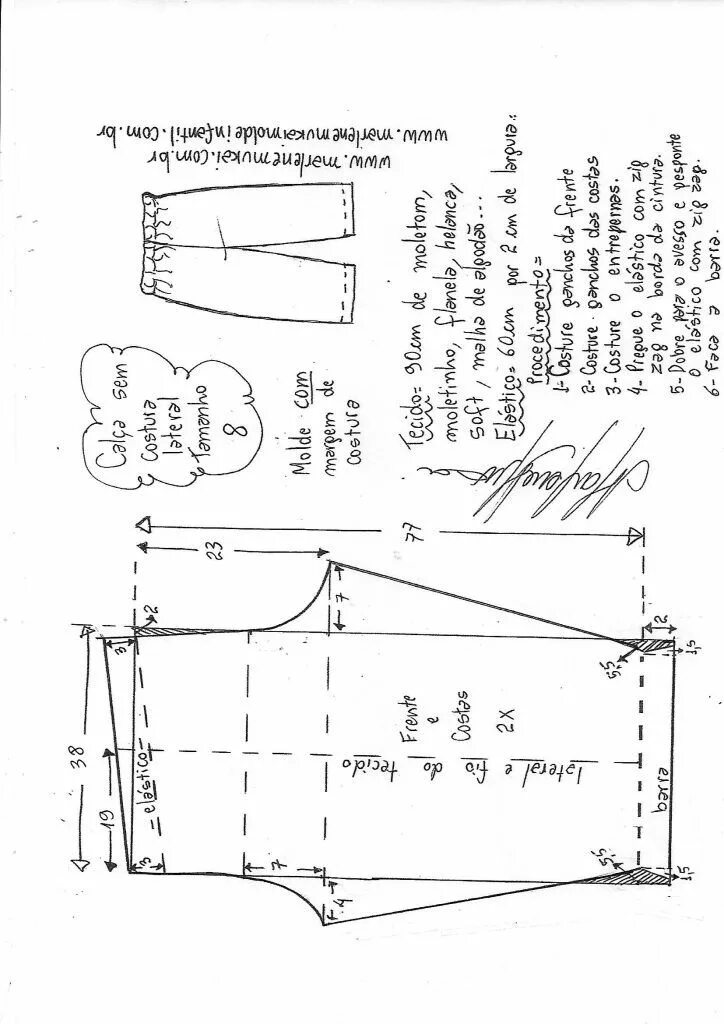 Calça sem
costura
lateral
Tamanho
8
Molde com
margem de
costura
www.marlenemukai.com.br
www.marlenemukaimoldeinfantil.com.br
Tecido= 90cm de moletom,
moletinho, flanela, helanca,
soft, malha de algodão...
Elástico= 60cm por 2 cm de largura.
Procedimento=
1- Costure ganchos da frente
2- Costure ganchos das costas
3- Costure o entrepernas.
4- Pregue o elástico com zig
zag na borda da cintura.
5- Dobre para o avesso e pesponte
o elástico com zig zag.
6- Faça a barra.
38
19
3
3
elástico
2
23
77
7
7
4
Frente
e
Costas
2X
lateral e fio do tecido
5,5
5,5
2
1,5
1,5
barra